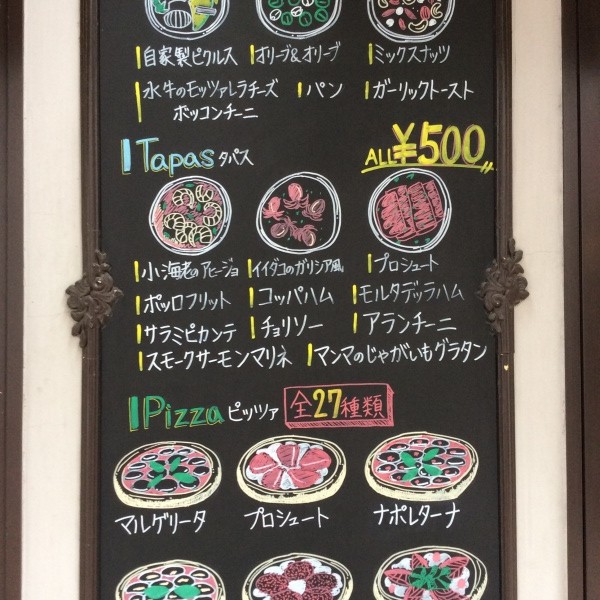 自家製ピクルス オリーブ&オリーブ ミックスナッツ
水牛のモッツァレラチーズ パン ガーリックトースト
ボッコンチーニ
Tapas タパス ALL ¥500
小海老のアヒージョ イイダコのガリシア風 プロシュート
ポッロフリット コッパハム モルタデッラハム
サラミピカンテ チョリソー アランチーニ
スモークサーモンマリネ マンマのじゃがいもグラタン
Pizza ピッツァ 全27種類
マルゲリータ プロシュート ナポレターナ